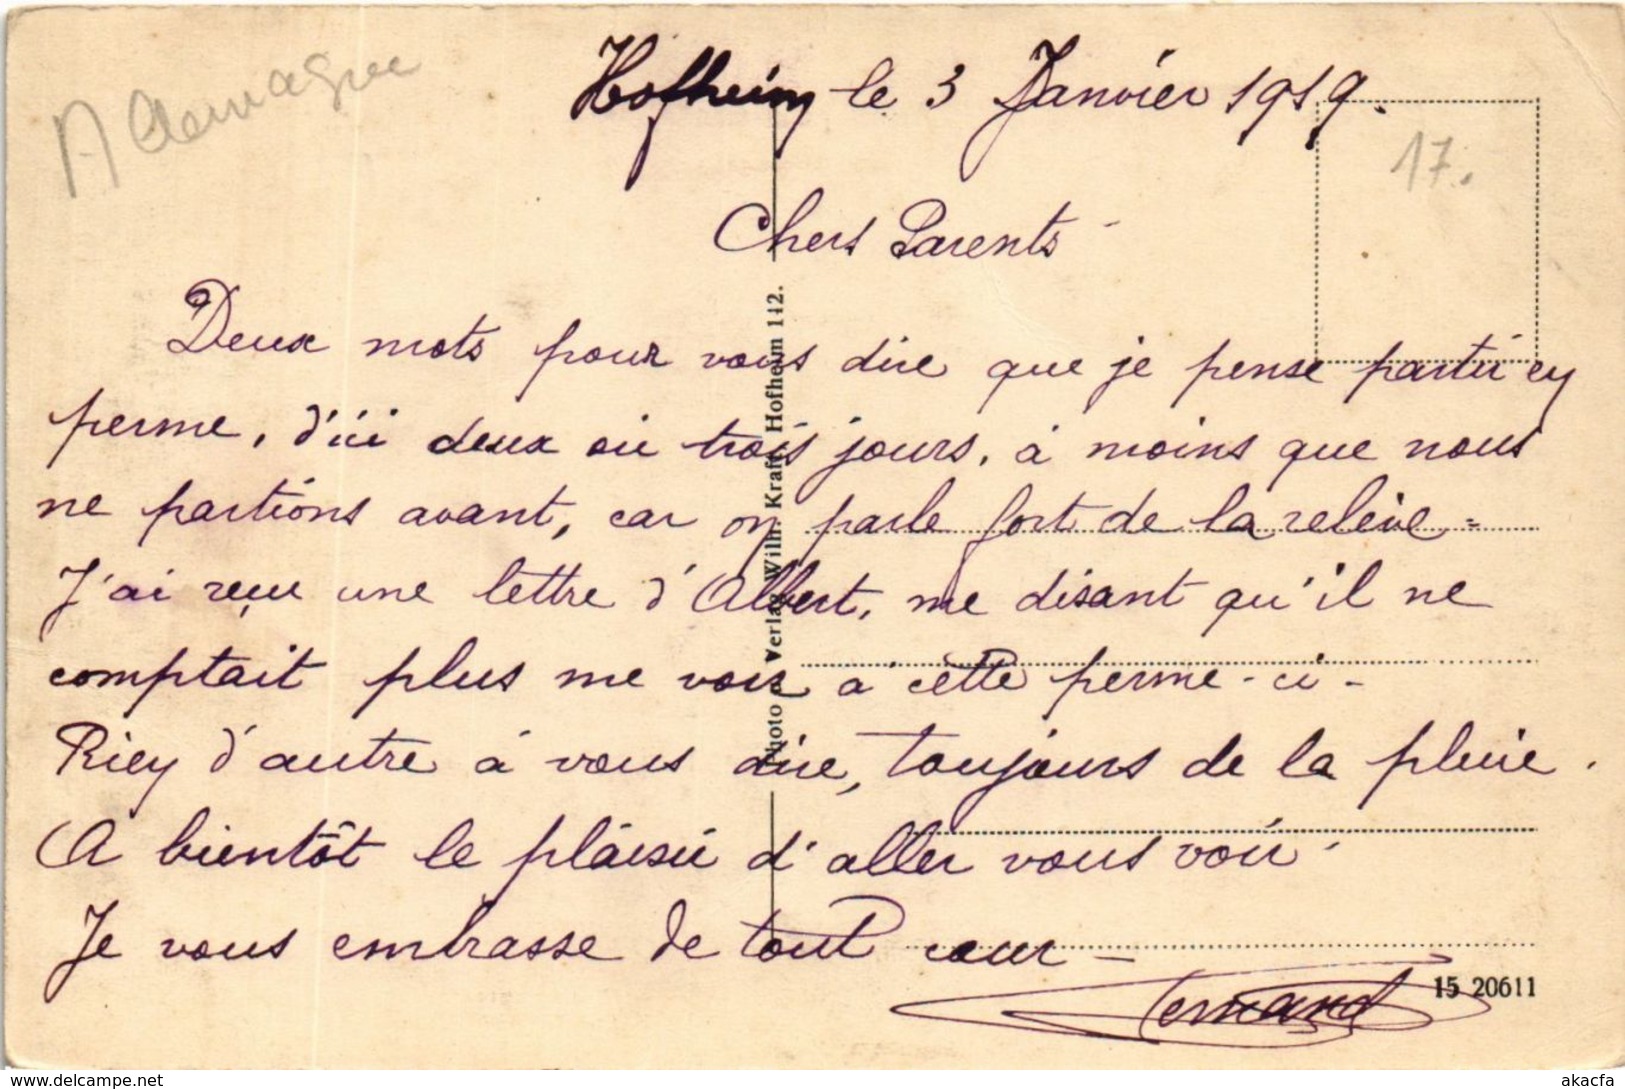 Allemagne
Hofheim le 3 Janvier 1919.
17.
Chers Parents
Deux mots pour vous dire que je pense partir en
perme, d'ici deux ou trois jours, à moins que nous
ne partions avant, car on parle fort de la relève =
J'ai reçu une lettre d'Albert, me disant qu'il ne
comptait plus me voir à cette perme-ci -
Rien d'autre à vous dire, toujours de la pluie.
A bientôt le plaisir d'aller vous voir.
Je vous embrasse de tout cœur -
Fernand
Photo u. Verlag Wilh. Kraft, Hofheim 112.
15 20611
delcampe.net
akacfa